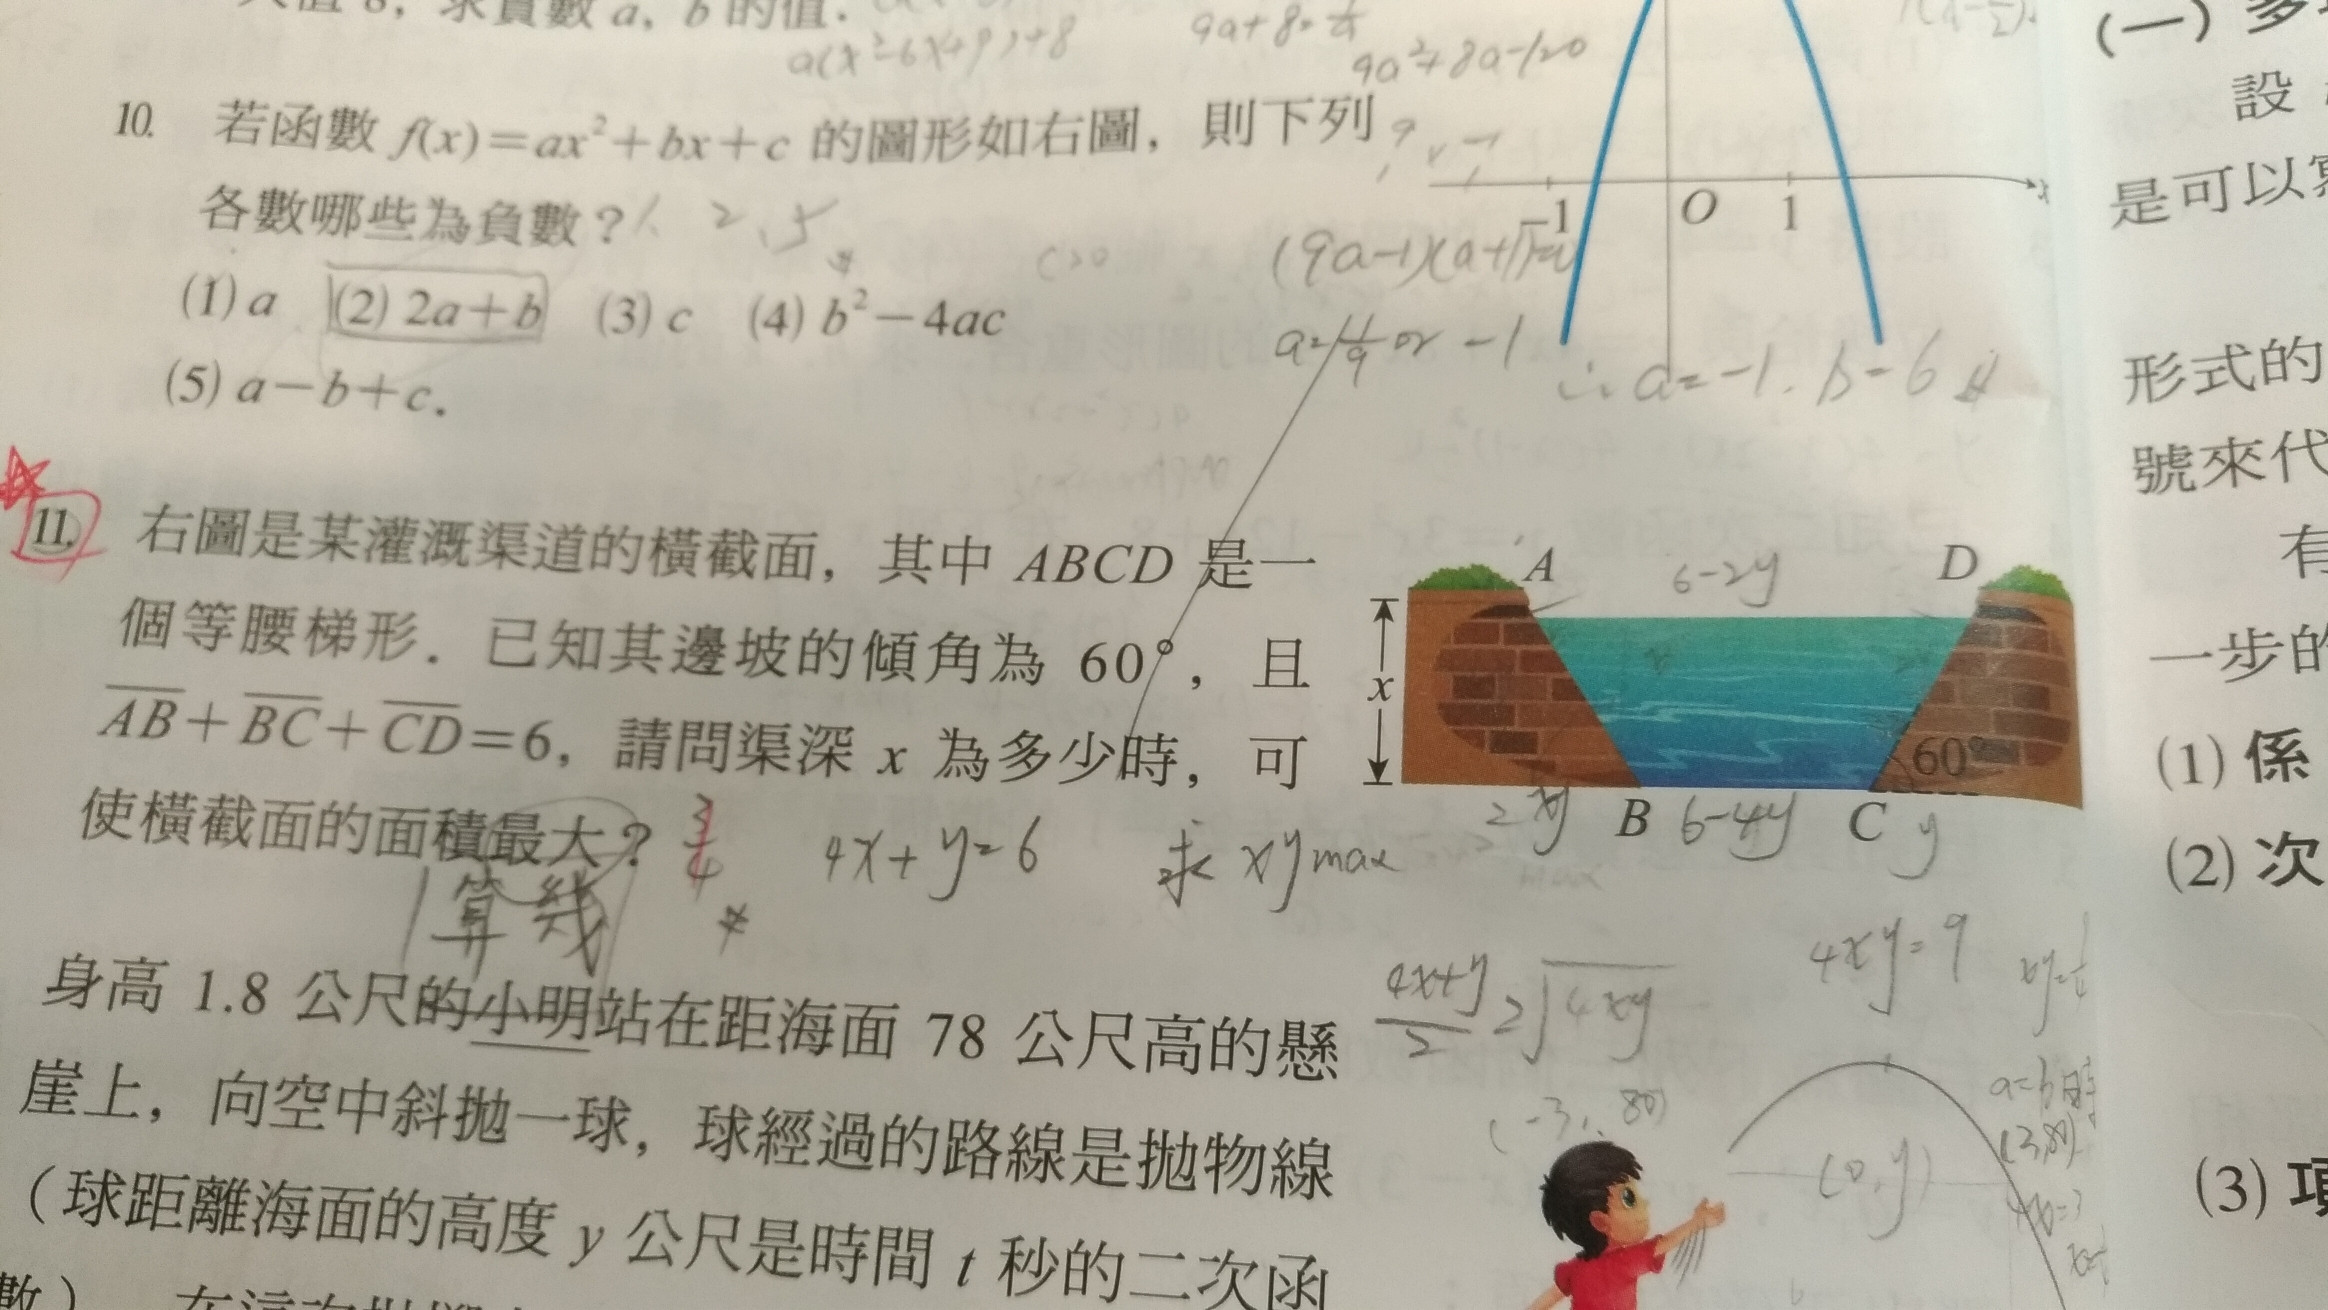 a(x²-6x+9)+8
9a+8=
9a²+8a-1=0
10. 若函數 f(x)=ax²+bx+c 的圖形如右圖，則下列
各數哪些為負數？1、2、5
(1) a (2) 2a+b (3) c (4) b²-4ac
(5) a-b+c.
-1 O 1 x
c>0
(9a-1)(a+1)=0
a=1/9 or -1
∴ a=-1. b=6
11. 右圖是某灌溉渠道的橫截面，其中 ABCD 是一
個等腰梯形．已知其邊坡的傾角為 60°，且
AB+BC+CD=6，請問渠深 x 為多少時，可
使橫截面的面積最大？
算幾
4x+y=6 求 xy max
A 6-2y D
x
60°
B 6-4y C y
4xy=9
(4x+y)/2 ≥ √4xy
身高 1.8 公尺的小明站在距海面 78 公尺高的懸
崖上，向空中斜拋一球，球經過的路線是拋物線
（球距離海面的高度 y 公尺是時間 t 秒的二次函
數）
(-3, 80)
(0, y)
(一) 多
設
是可以
形式的
號來代
有
一步的
(1) 係
(2) 次
(3) 項